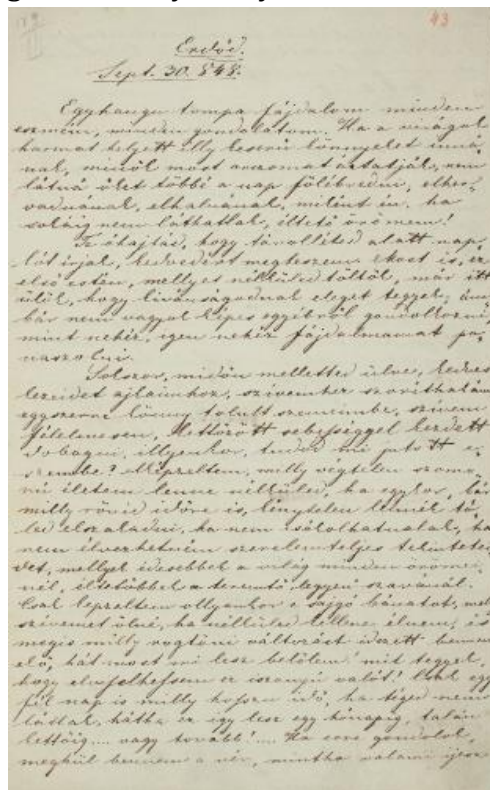 43
Erdőd.
Sept. 30. 848.
Egyhangu tompa fájdalom minden
eszmém, minden gondolatom. Ha a virágok
harmat helyett illy keserü könnyeket inná-
nak, minők most arcomat áztatják, nem
látná őket többé a nap fölébredni, elher-
vadnának, elhalnának, miként én, ha
sokáig nem láthatlak, éltető örömem!
Te óhajtád, hogy távolléted alatt nap-
lót írjak, kedvedért megteszem ekost is, ez
első estén, mellyet nélküled töltök, már itt
ülök, hogy kivánságodnak eleget tegyek, ám-
bár nem vagyok képes egyébről gondolkozni
mint nehéz, igen nehéz fájdalmamat pa-
naszolni.
Sokszor, midőn melletted ülve, kedves
kezeidet ajkaimhoz, szivemhez szoríthatám
egyszerre könny tolult szemeimbe, szivem
félelmesen, kettőzött sebességgel kezdett
dobogni, illyenkor, tudod mi jutott e-
szembe? Képzeltem, milly végtelen szomo-
rú életem lenne nélküled, ha egykor, bár
milly rövid időre is, kénytelen lennél tő-
led elszakadni, ha nem csókolhatnálak, ha
nem élvezhetném szerelemteljes tekintetei-
det, mellyek édesebbek a világ minden öröme-
nél, éltetőbbek a teremtő "legyen" szavánál.
Csak képzeltem ollyankor e sajgó bánatot, mel
szivemet ölné, ha nélküled kellene élnem, és
mégis milly rögtöni változást idézett bennem
elő, hát most mi lesz belőlem! mit tegyek,
hogy elviselhessem ez iszonyú valót! Csak egy
fél nap is milly hosszu idő, ha téged nem
látlak, hátha ez igy lesz egy hónapig, talán
kettőig.... vagy tovább!.... Ha erre gondolok,
meghül bennem a vér, mintha valami